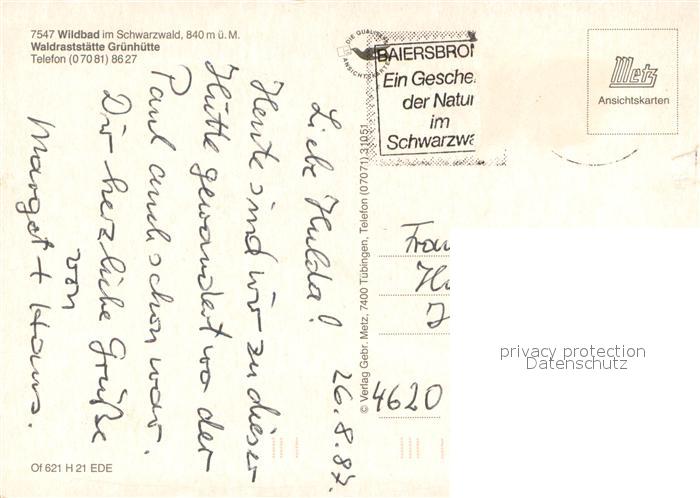 7547 Wildbad im Schwarzwald, 840 m ü. M.
Waldraststätte Grünhütte
Telefon (0 70 81) 86 27
Liebe Hulda!
26.8.87.
Heute sind wir zu dieser
Hütte gewandert wo der
Paul auch schon war.
Dir herzliche Grüße
von
Margot + Hans.
Of 621 H 21 EDE
© Verlag Gebr. Metz, 7400 Tübingen, Telefon (07071) 31051
DIE QUALITÄTS
ANSICHTSKARTE
BAIERSBRO
Ein Gesche
der Natur
im
Schwarzwa
Metz
Ansichtskarten
Frau
4620
privacy protection
Datenschutz